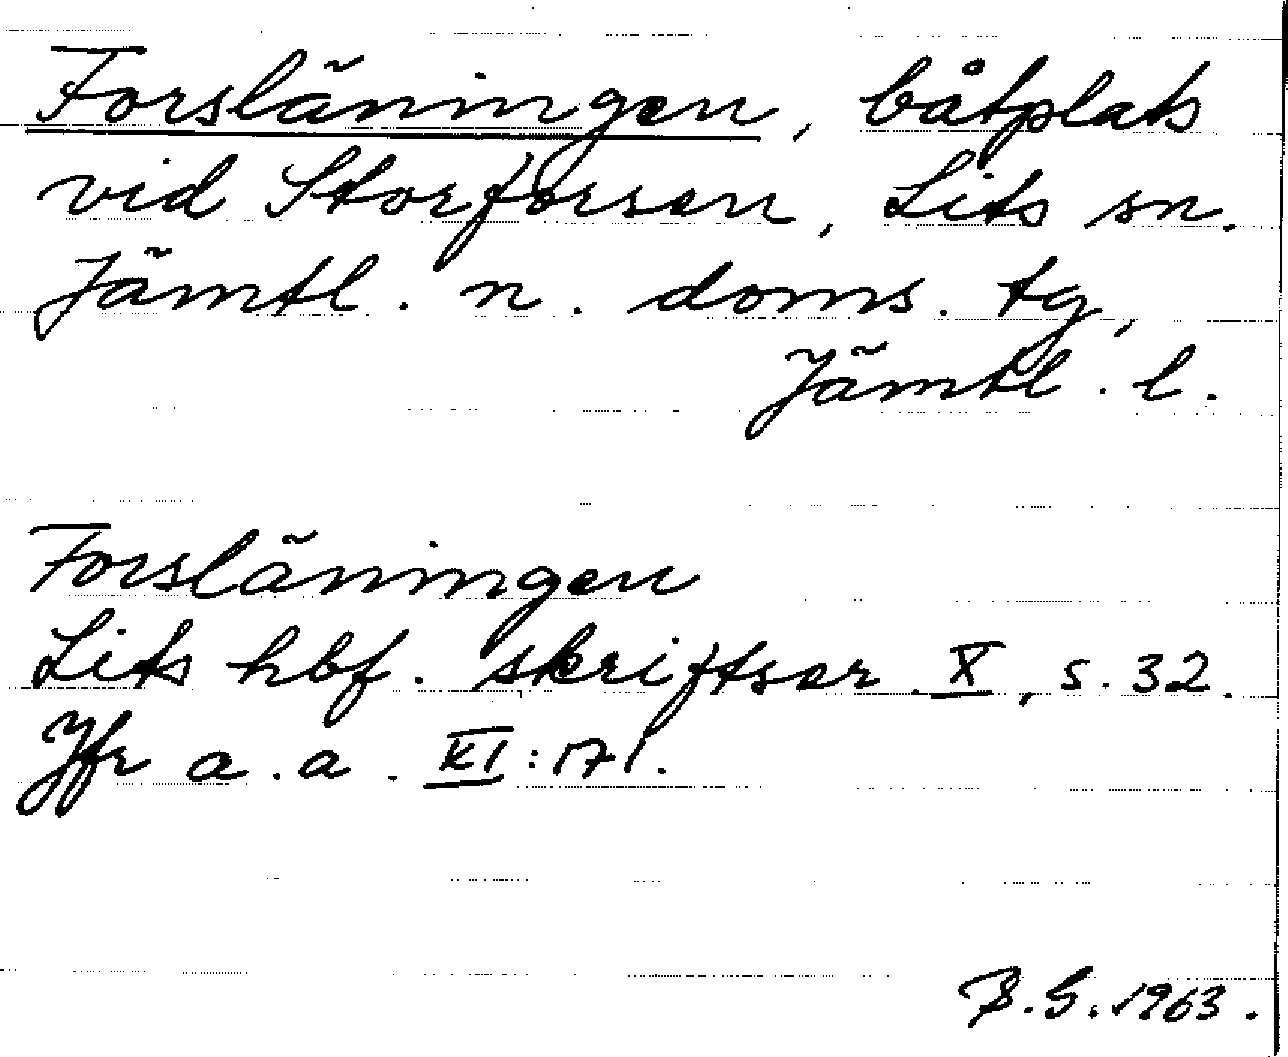 Forslåningen, båtplats
vid Storforsen, Lits sn.
Jämtl. n. doms. tg,
Jämtl. l.
Forslåningen
Lits hbf. skriftser. X, s. 32.
Jfr a. a. XI: 171.
B. G. 1963.